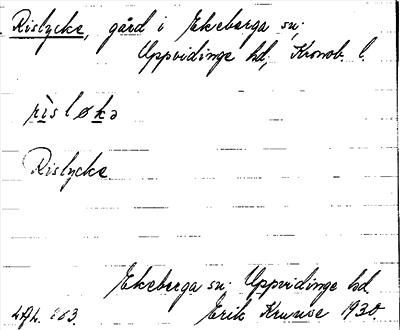 Rislycke, gård i Ekeberga sn;
Uppvidinge hd, Kronob. l.
rìsløkə
Rislycke
Ekeberga sn. Uppvidinge hd
Erik Kruuse 1930